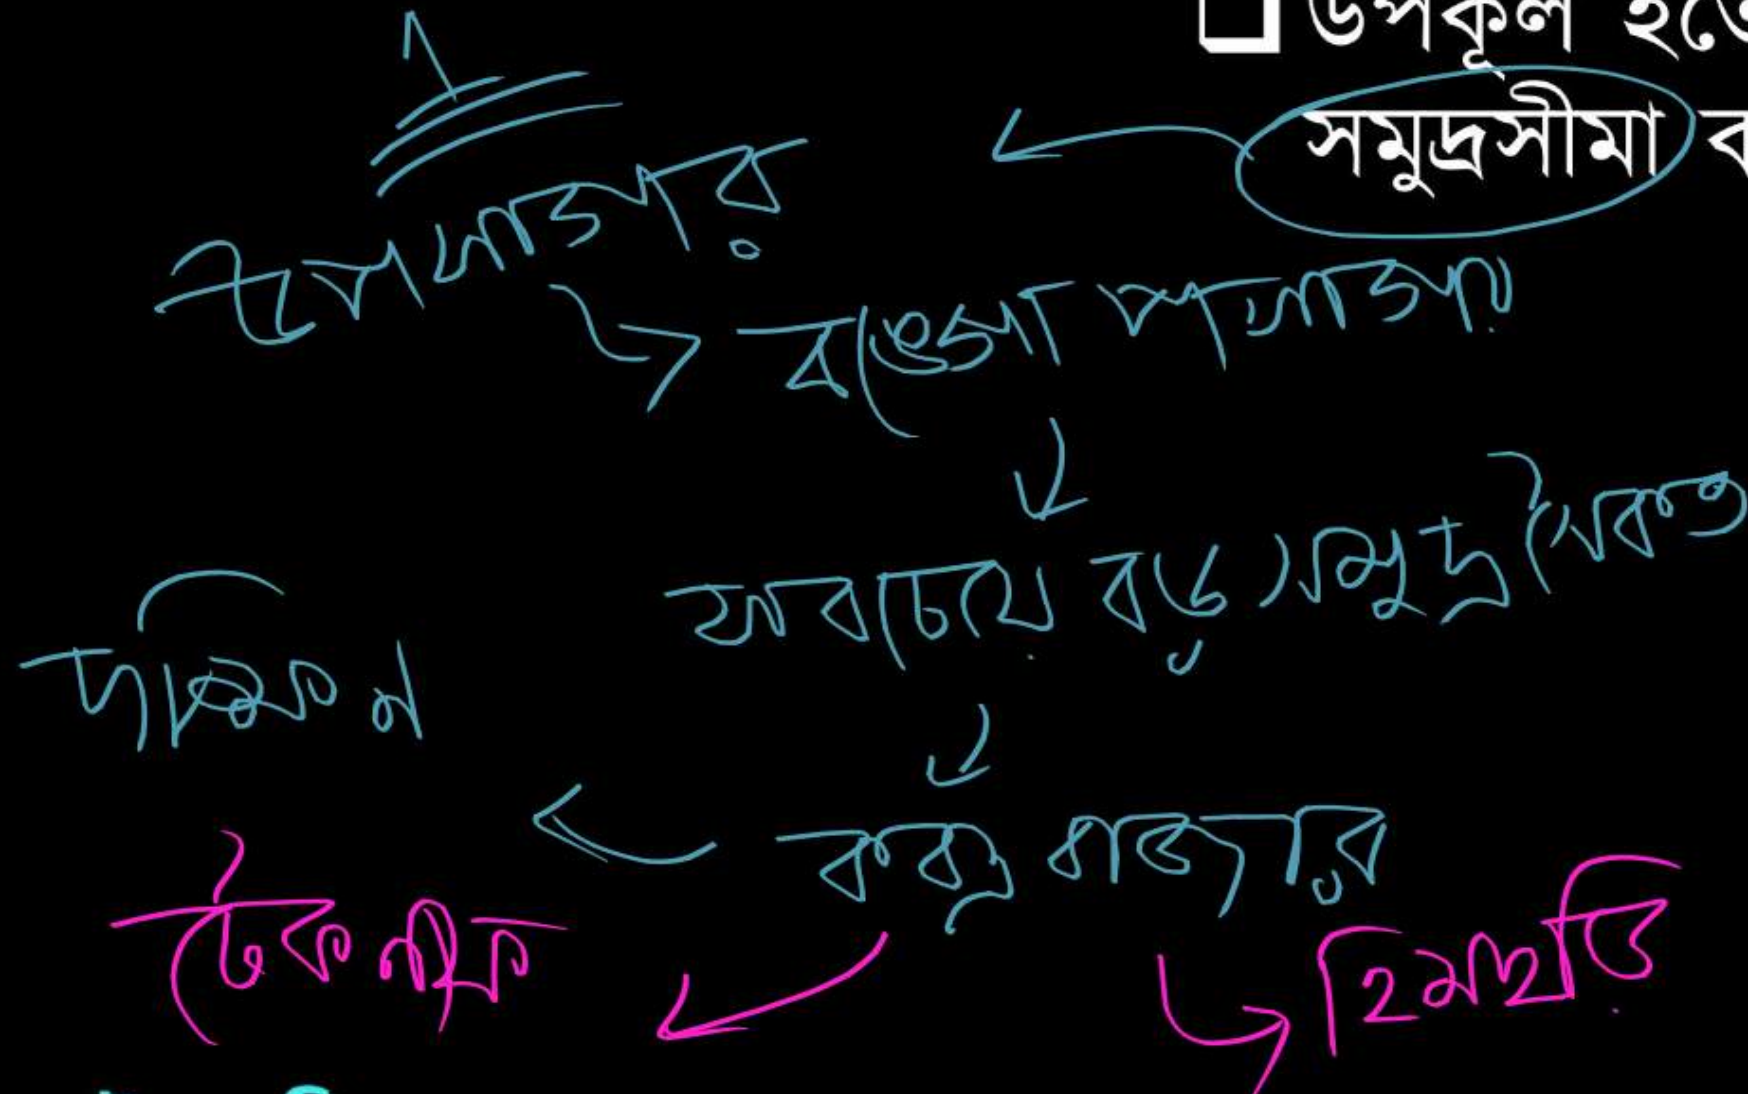 উপকূল হতে
সমুদ্রসীমা
১
উপসাগর
বঙ্গোপসাগর
সবচেয়ে বড় সমুদ্র সৈকত
দক্ষিন
কক্সবাজার
টেকনাফ
হিমছড়ি